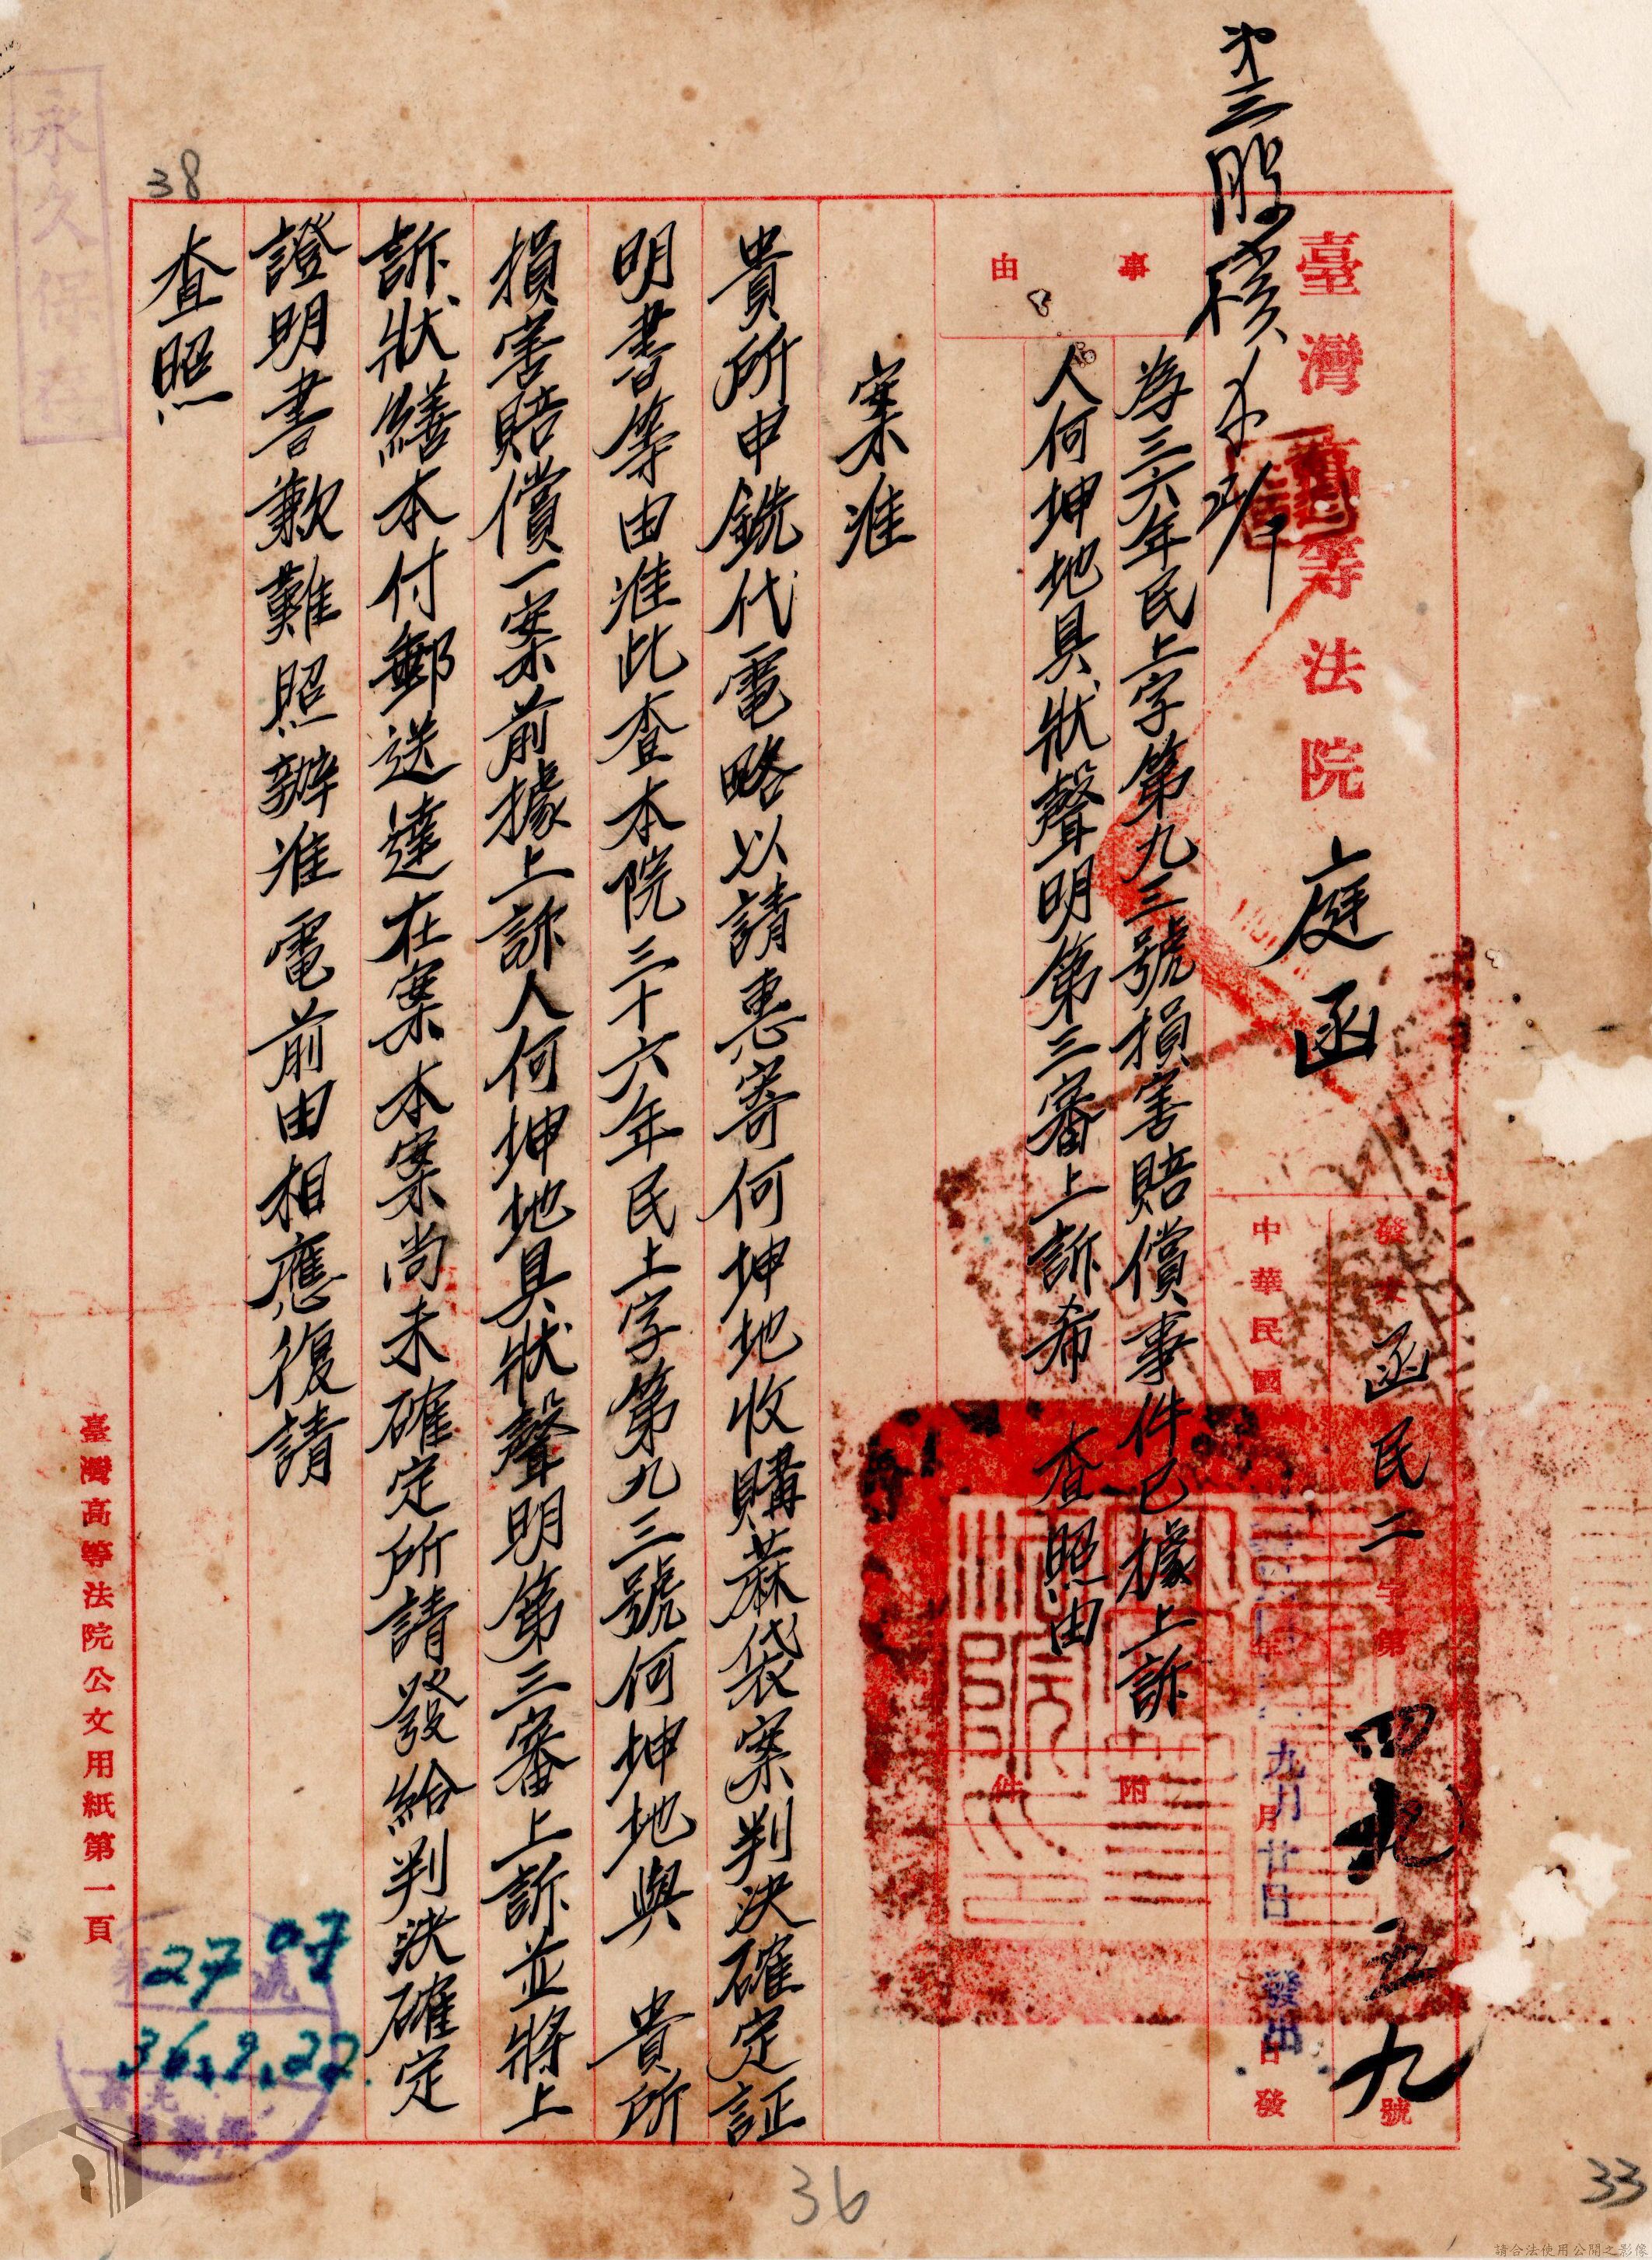 臺灣高等法院庭函
發文
函民二字第四九五九號
中華民國
年九月廿日發出
月
日發
附件
事由
為三六年民上字第九三號損害賠償事件已據上訴
人何坤地具狀聲明第三審上訴希 查照由
案准
貴所申銑代電略以請惠寄何坤地收購蔴袋案判決確定証
明書等由准此查本院三十六年民上字第九三號何坤地與 貴所
損害賠償一案前據上訴人何坤地具狀聲明第三審上訴並將上
訴狀繕本付郵送達在案本案尚未確定所請發給判決確定
證明書歉難照辦准電前由相應復請
查照
臺灣高等法院公文用紙第一頁
永久保存
38
36
33
36.9.22
號
請合法使用公開之影像